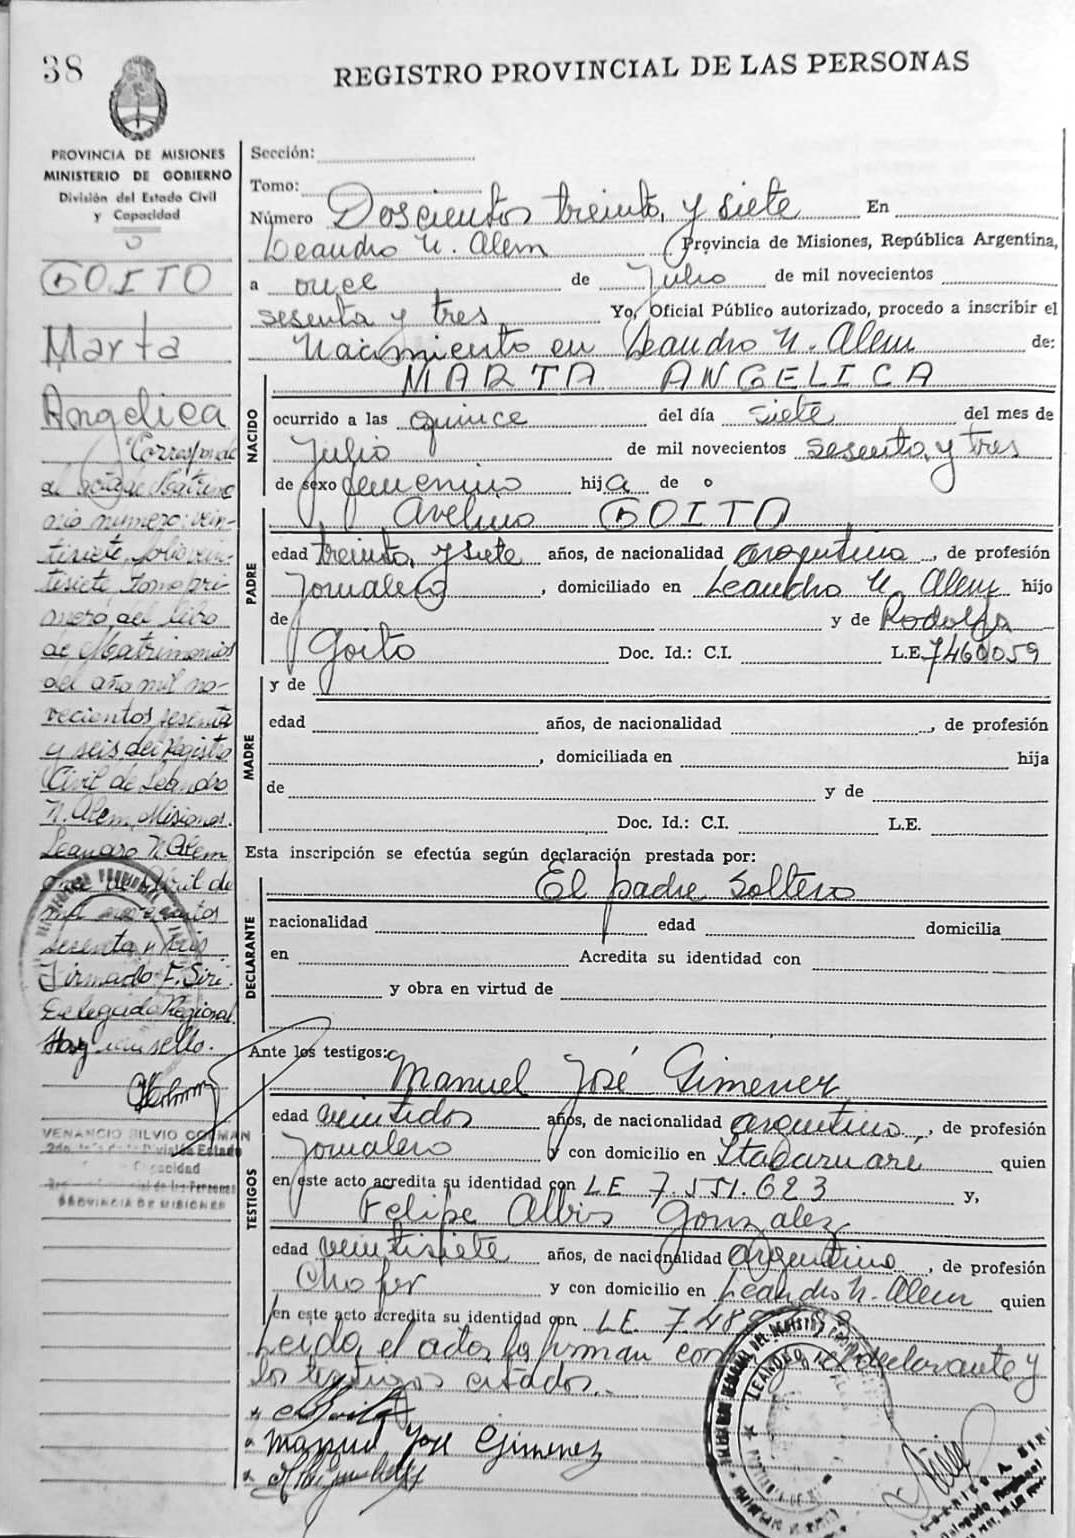 38
REGISTRO PROVINCIAL DE LAS PERSONAS
PROVINCIA DE MISIONES
MINISTERIO DE GOBIERNO
División del Estado Civil
y Capacidad
GOITO
Marta
Angelica
Corresponde
al acta de Matrimo
nio numero: vein-
tisiete, folio vein-
tisiete, tomo pri
mero del libro
de Matrimonios
del año mil no-
vecientos sesenta
y seis del Registro
Civil de Leandro
N. Alem, Misiones.
Leandro N. Alem
once de Abril de
mil novecientos
setenta y tres
Firmado F. Siri.
Delegado Regional.
Hay un sello.
VENANCIO SILVIO COLMAN
2do. Jefe de la División Estado
Capacidad
de las Personas
PROVINCIA DE MISIONES
Sección:
Tomo:
Número Doscientos treinta y siete En
Leandro N. Alem Provincia de Misiones, República Argentina,
a once de Julio de mil novecientos
sesenta y tres Yo, Oficial Público autorizado, procedo a inscribir el
Nacimiento en Leandro N. Alem de:
MARTA ANGELICA
NACIDO
ocurrido a las quince del día siete del mes de
Julio de mil novecientos sesenta y tres
de sexo femenino hija de
Avelino GOITO
PADRE
edad treinta y siete años, de nacionalidad argentino, de profesión
Jornalero, domiciliado en Leandro N. Alem hijo
de y de Rodolfa
Goito Doc. Id.: C.I. L.E. 7460059
MADRE
y de
edad años, de nacionalidad, de profesión
, domiciliada en hija
de y de
Doc. Id.: C.I. L.E.
Esta inscripción se efectúa según declaración prestada por:
El padre Soltero
DECLARANTE
nacionalidad edad domicilia
en Acredita su identidad con
y obra en virtud de
Ante los testigos:
Manuel José Gimenez
TESTIGOS
edad veintidos años, de nacionalidad argentino, de profesión
Jornalero y con domicilio en Itacaruare quien
en este acto acredita su identidad con LE 7.551.623 y,
Felipe Albis Gonzalez
edad veintisiete años, de nacionalidad argentino, de profesión
Chofer y con domicilio en Leandro N. Alem quien
en este acto acredita su identidad con LE. 7.48
Leida el acta, la firman con el declarante y
los testigos citados..
Manuel José Gimenez
LEANDRO N.
Delegado Regional